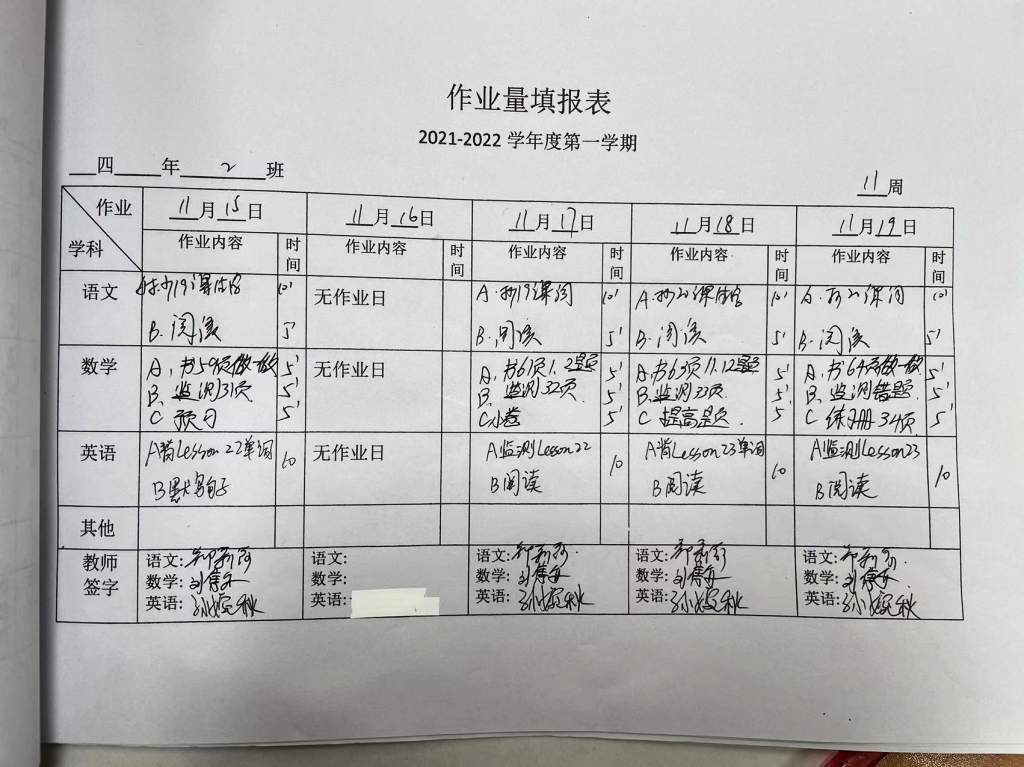 作业量填报表
2021-2022 学年度第一学期
四 年 2 班
11 周
作业 11月15日 11月16日 11月17日 11月18日 11月19日
学科 作业内容 时间 作业内容 时间 作业内容 时间 作业内容 时间 作业内容 时间
语文 抄19课 10' 无作业日 A.抄19课词 10' A.抄20课 10' A.抄20课词 10'
B.阅读 5' B.阅读 5' B.阅读 5' B.阅读 5'
数学 A.书59页做一做 5' 无作业日 A.书61页1.2题 5' A.书63页11.12题 5' A.书64页做一做 5'
B.监测31页 5' B.监测32页 5' B.监测33页 5' B.监测错题 5'
C 预习 5' C小卷 5' C 提高题 5' C 练习册34页 5'
英语 A背Lesson 22单词 10 无作业日 A监测Lesson22 10 A背Lesson23单词 10 A监测Lesson23 10
B默写句子 B阅读 B阅读 B阅读
其他
教师签字 语文: 语文: 语文: 语文: 语文:
数学: 数学: 数学: 数学: 数学:
英语: 英语: 英语: 英语: 英语: